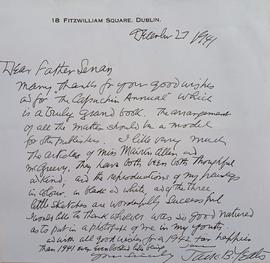 18 Fitzwilliam Square, Dublin.
December 27 1941
Dear Father Senan
Many thanks for your good wishes
and for "The Capuchin Annual" which
is a truly Grand book. The arrangement
of all the matter should be a model
for other publishers. I like very much
the articles of Miss Mairin Allen and
McGreevy. They have both been both thoughtful
and kind, and the reproductions of my paintings
in colour, in black and white, and of the three
little sketches are wonderfully successful
I would like to thank whoever was so Good natured
as to put in a photograph of me in my youth,
with all good wishes for a 1942 far happier
than 1941
yours sincerely
Jack B Yeats